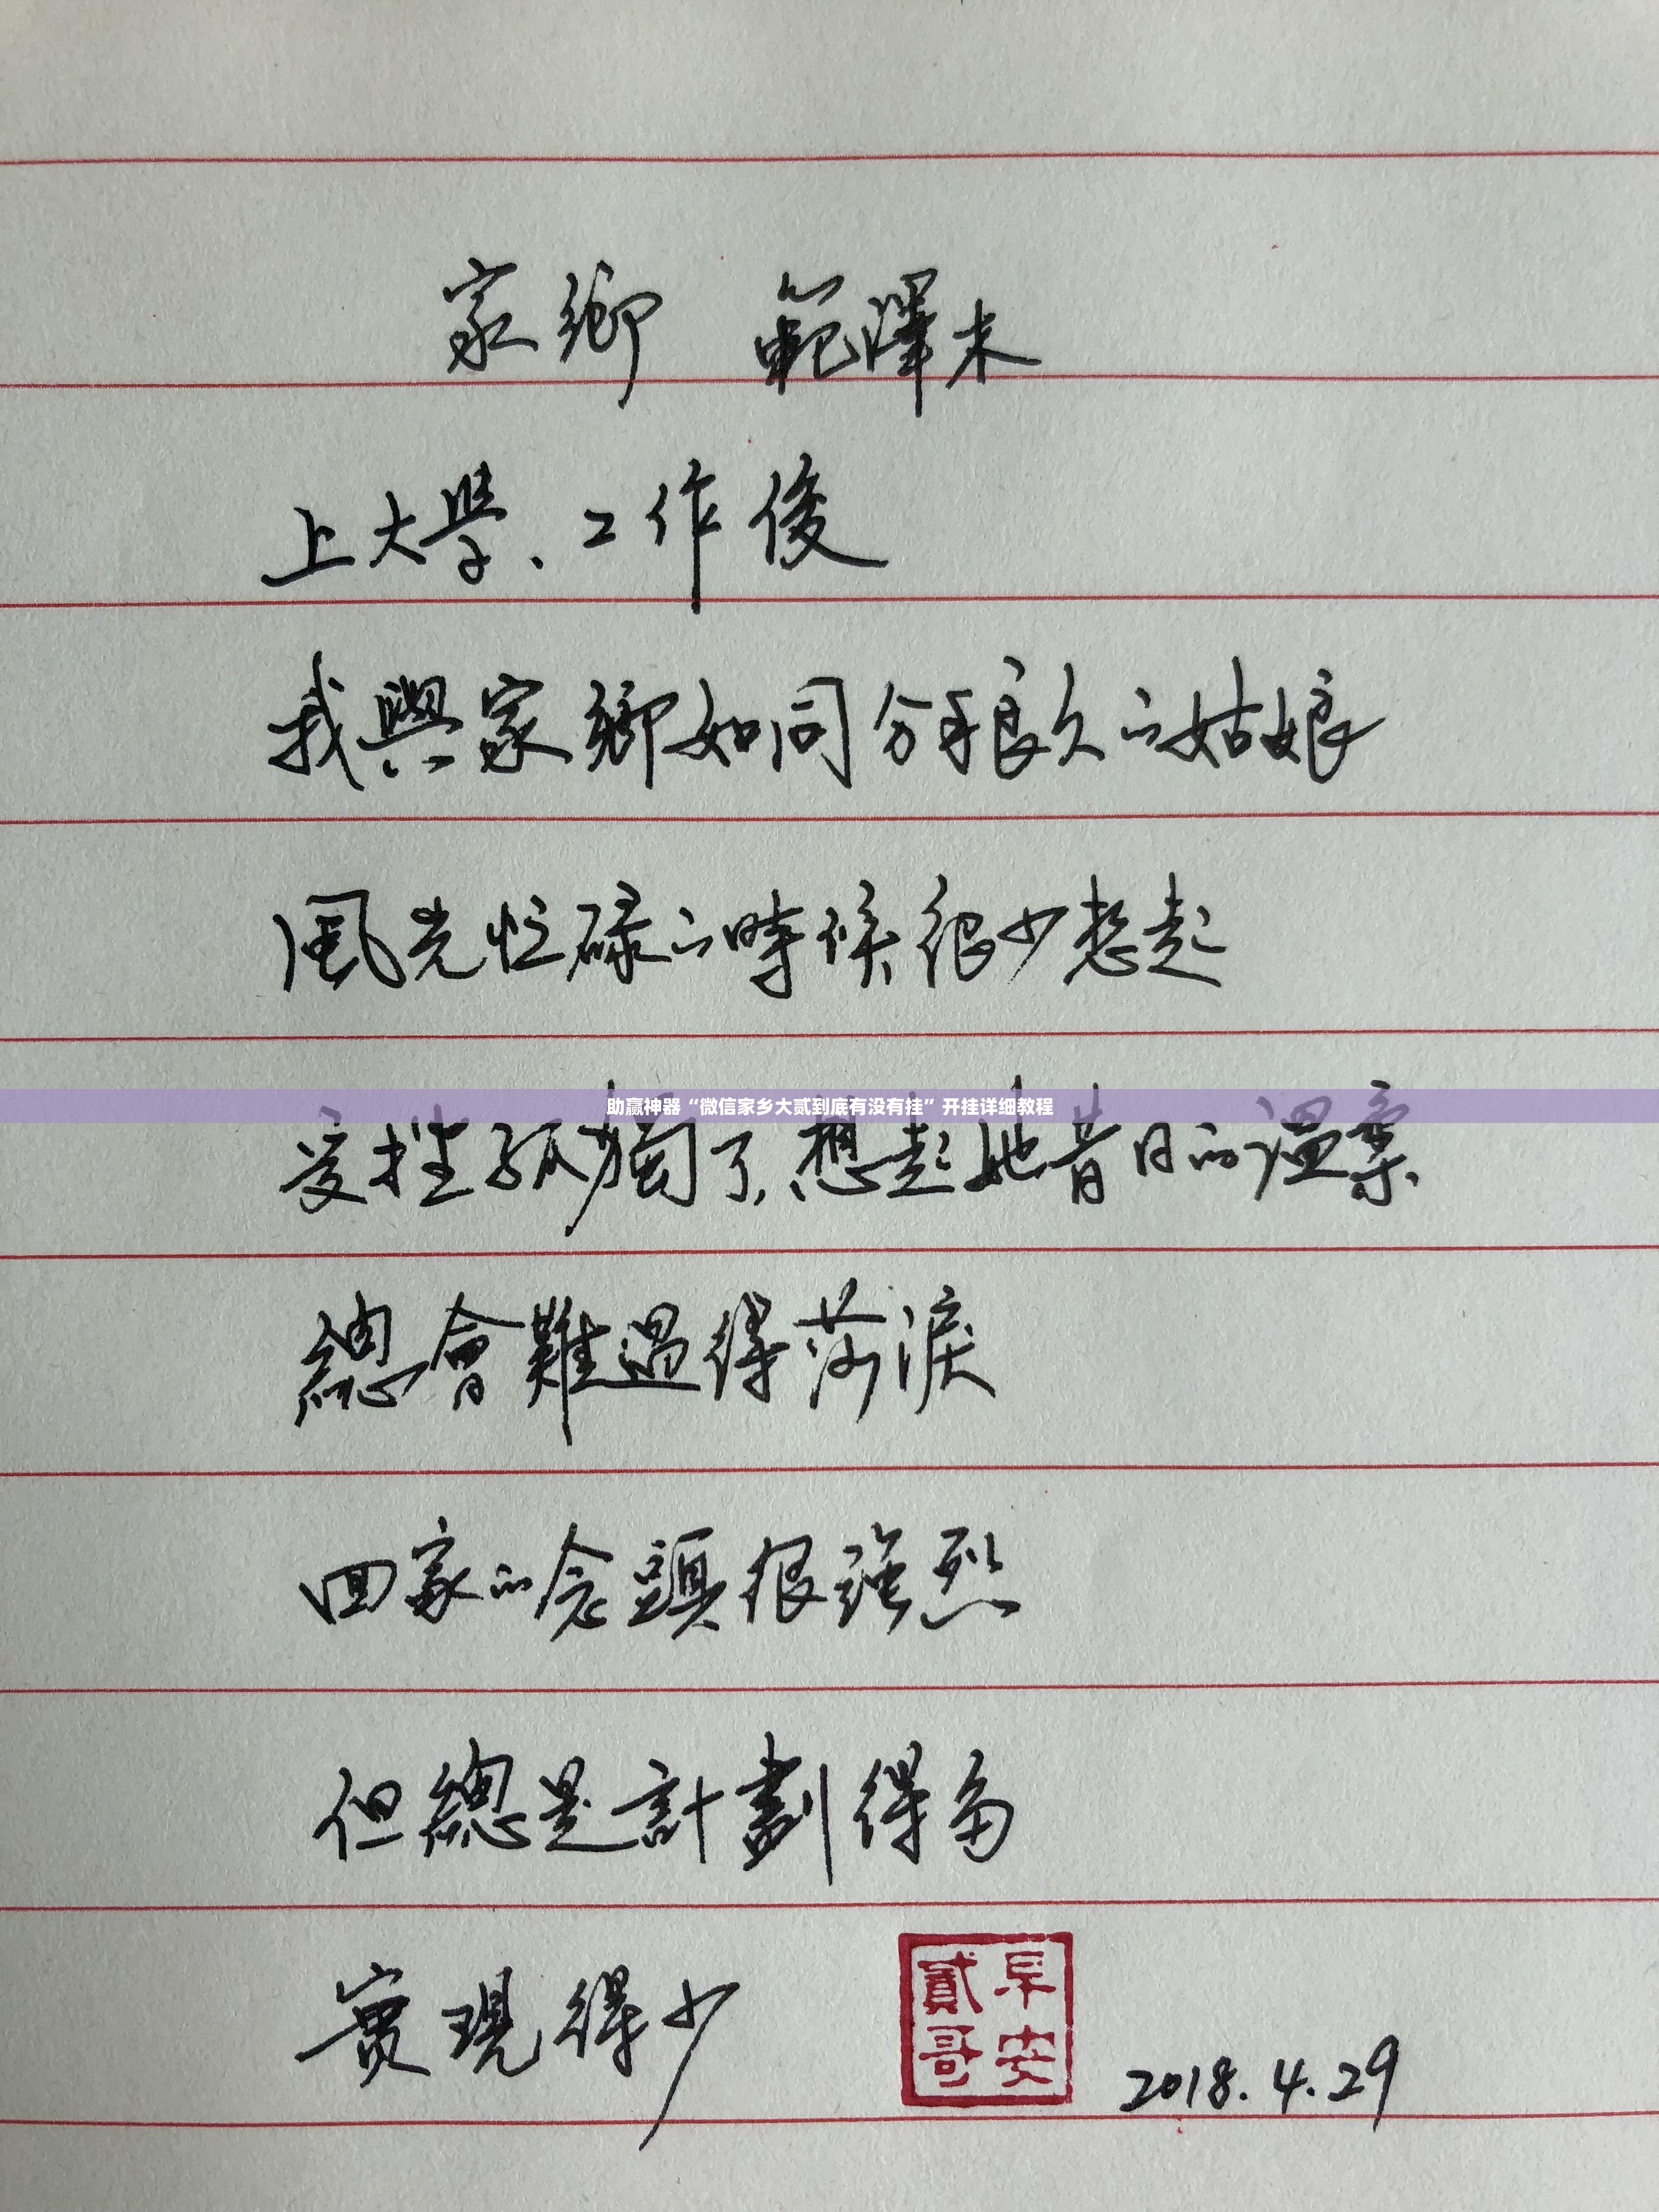 家鄉 範澤木
上大學、工作後
我與家鄉如同分手很久的姑娘
風光忙碌的時候很少想起
助赢神器“微信家乡大贰到底有没有挂”开挂详细教程
受挫孤獨了,想起她昔日的溫柔
總會難過得落淚
回家的念頭很強烈
但總是計劃得多
實現得少
早安
貳哥
2018.4.29